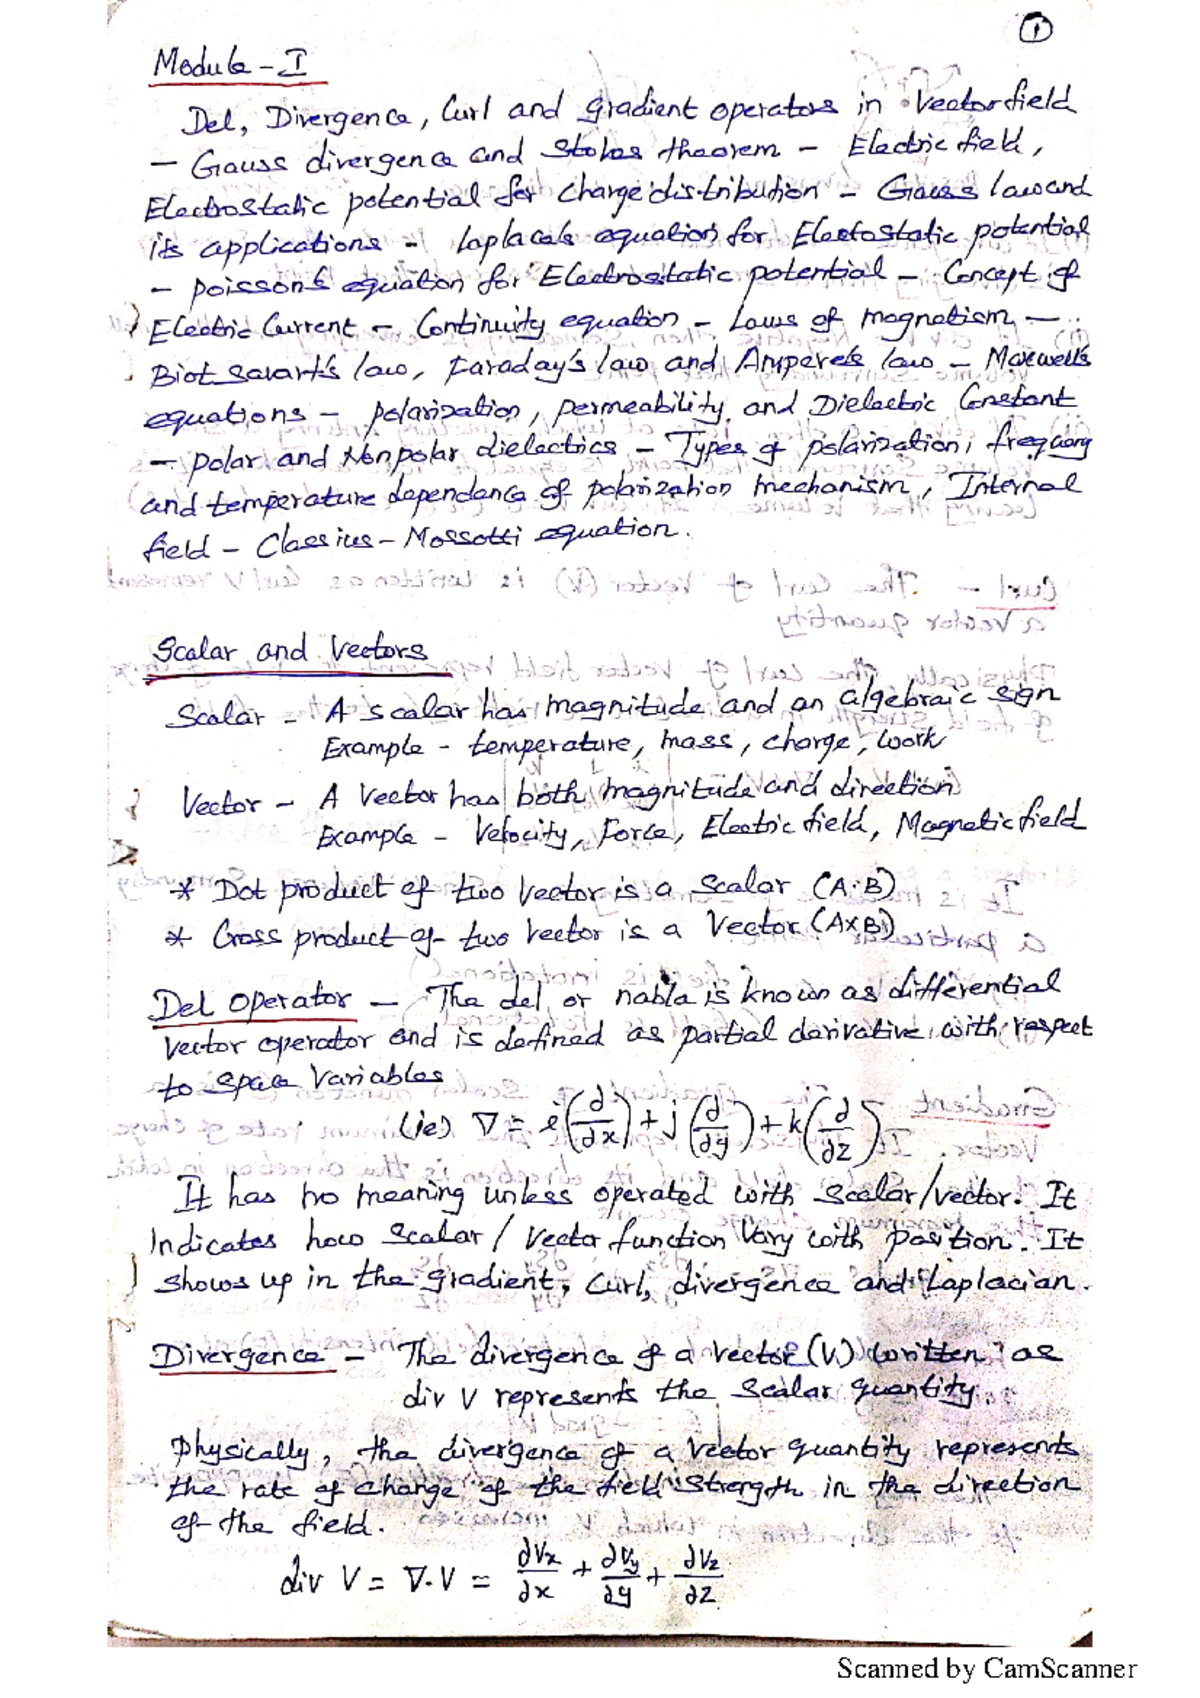 1
Module - I
Del, Divergence, Curl and gradient operators in Vector field
- Gauss divergence and Stokes theorem - Electric field,
Electrostatic potential for charge distribution - Gauss law and
its applications - Laplace's equation for Electostatic potential
- Poisson's equation for Electrostatic potential - Concept of
Electric Current - Continuity equation - Laws of magnetism -
Biot Savart's law, Faraday's law and Ampere's law - Maxwell's
equations - polarization, permeability and Dielectric Constant
- polar and Non polar dielectrics - Types of polarization, frequency
and temperature dependence of polarization mechanism, Internal
field - Classius - Mossotti equation.
Scalar and Vectors
Scalar - A scalar has magnitude and an algebraic sign
Example - temperature, mass, charge, work
Vector - A Vector has both magnitude and direction
Example - Velocity, Force, Electric field, Magnetic field
* Dot product of two vector is a Scalar (A·B)
* Cross product of two vector is a Vector (A×B)
Del operator - The del or nabla is known as differential
vector operator and is defined as partial derivative with respect
to space variables
(ie) ∇ = i(∂/∂x) + j(∂/∂y) + k(∂/∂z)
It has no meaning unless operated with scalar/vector. It
Indicates how Scalar / Vector function Vary with position. It
shows up in the gradient, curl, divergence and Laplacian.
Divergence - The divergence of a vector (V) written as
div V represents the scalar quantity.
Physically, the divergence of a vector quantity represents
the rate of change of the field strength in the direction
of the field.
div V = ∇·V = ∂Vx/∂x + ∂Vy/∂y + ∂Vz/∂z
Scanned by CamScanner